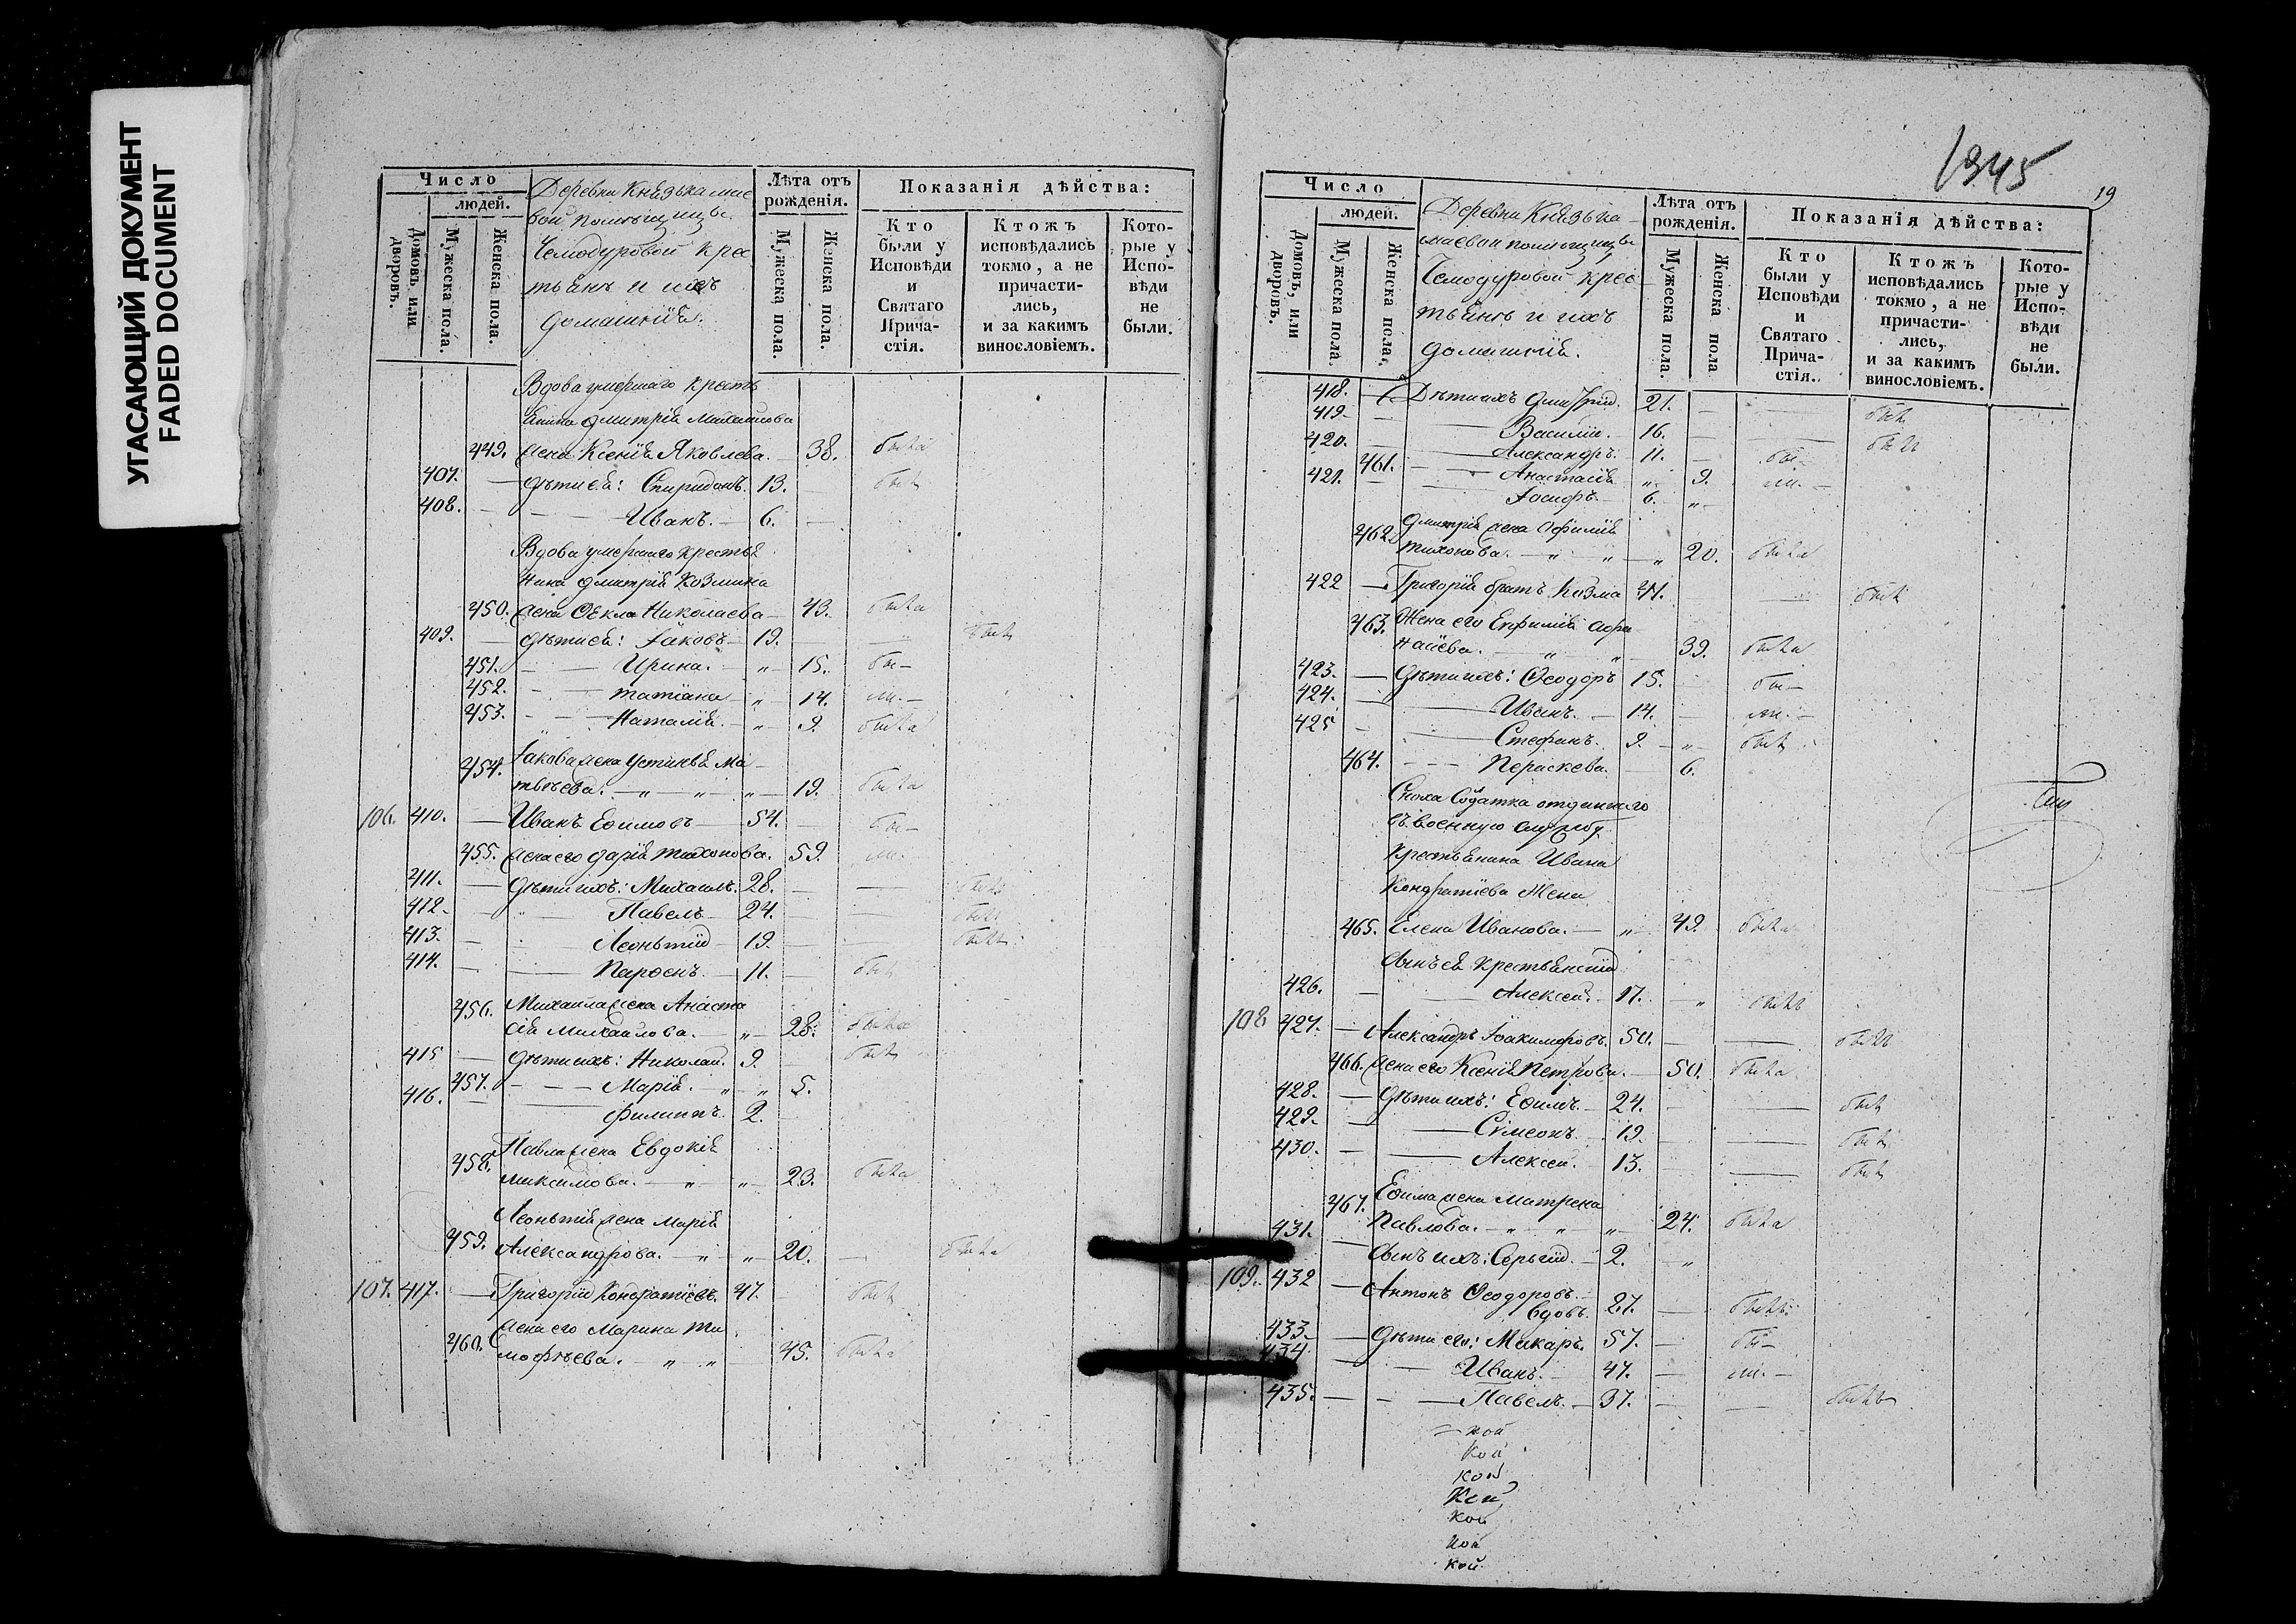 УГАСАЮЩИЙ ДОКУМЕНТ
FADED DOCUMENT
Число
людей.
Домовъ, или дворовъ.
Мужеска пола.
Женска пола.
Деревни Князькамае
вой помѣщицы
Чемодуровой крес
тьянъ и ихъ
домашнія.
Лѣта отъ рожденія.
Мужеска пола.
Женска пола.
Показанія дѣйства:
Кто были у Исповѣди и Святаго Причастія.
Ктожъ исповѣдались токмо, а не причастились, и за какимъ винословіемъ.
Которые у Исповѣди не были.
Вдова умершаго кресть
янина Дмитрія Михаилова
449. жена Ксенія Яковлева. — 38. была
407. — дѣти ея: Спиридонъ. 13. — былъ
408. — — Иванъ. — 6. —
Вдова умершаго крестья
нина Дмитрія Козмина
450. жена Ѳекла Николаева — 43. была
409. — дѣти ея: Іаковъ — 19. — — былъ
451. — — Ирина. — „ — 15. бы —
452. — — Татіана — „ — 14. ли. —
453. — — Наталія. — „ — 9. была
Іакова жена Устинья Ма —
454. твѣева. — „ — „ — „ — 19. была
106. 410. — Иванъ Ефимовъ — 54. — бы —
455. жена его Дарія Тихонова. 59. ли.
411. — дѣти ихъ: Михаилъ. 28. — — былъ
412. — — Павелъ — 24. — — былъ
413. — — Леонтій — 19. — — былъ
414. — — Парѳенъ. — 11. — былъ
Михаила жена Анаста
456. сія Михаилова. — „ — 28. была
415 — дѣти ихъ: Николай. 9. былъ
457. — — — Марія. — „ — „ 5.
416. — — Филиппъ. 2.
Павла жена Евдокія
458. Максимова. — „ — „ — 23. была
Леонтія жена Марія
459. Александрова. — „ — „ — 20. — была
107. 417. — Григорій Кондратіевъ. 47. — былъ
жена его Марина Ти
460. мофѣева. — „ „ — 45. была
1345
19
Число
людей.
Домовъ, или дворовъ.
Мужеска пола.
Женска пола.
Деревни Князька —
маевой помѣщицы
Чемодуровой крес —
тьянъ и ихъ
домашнія.
Лѣта отъ рожденія.
Мужеска пола.
Женска пола
Показанія дѣйства:
Кто были у Исповѣди и Святаго Причастія.
Ктожъ исповѣдались токмо, а не причастились, и за какимъ винословіемъ.
Которые у Исповѣди не были.
418. — Дѣти ихъ Дмитрій. 21. — былъ
419. — — Василій. — 16. — — былъ
420. — — Александръ. 11. — бы —
461. — — Анастасія „ — 9. ли. —
421. — — Іосифъ. — 6. „ —
Дмитрія жена Ефимія
462. Тихонова. — „ — „ — „ 20. была
422 — Григорія братъ Козма 41. — былъ
463. Жена его Ефимія Афа
наіева. — „ — „ — 39. была
423. — Дѣти ихъ: Ѳеодоръ 15. — бы —
424. — — Иванъ. — 14. — ли. —
425 — — Стефанъ. 9. — „ — былъ
464. — — — Пераскева. — 6.
Сноха Солдатка отданнаго
въ военную службу
Крестьянина Ивана
Кондратіева Жена
465. Елена Иванова. — „ — 49. была
сынъ ея крестьянскій
426. — — Алексей. 17. — „ былъ
108. 427. — Александръ Іоакимовъ. 50. — — былъ
466. жена его Ксенія Петрова. — 50. была
428. — Дѣти ихъ: Ефимъ. — 24. — — былъ
429. — — Сѵмеонъ. — 19. — — былъ
430. — — Алексей. — 13. — — былъ
Ефима жена Матрена
467. Павлова. — „ — „ — „ 24. была
431. — сынъ ихъ: Сергій. — 2. — „
109. 432 — Антонъ Ѳеодоровъ —
вдовъ. 27. — былъ.
433. — Дѣти его: Макаръ. 57. — бы —
434. — — Иванъ. — 47. — ли. —
435. — — — Павелъ. — 37. — — былъ
— кой
кой
кой
кой
кой
кой
кой